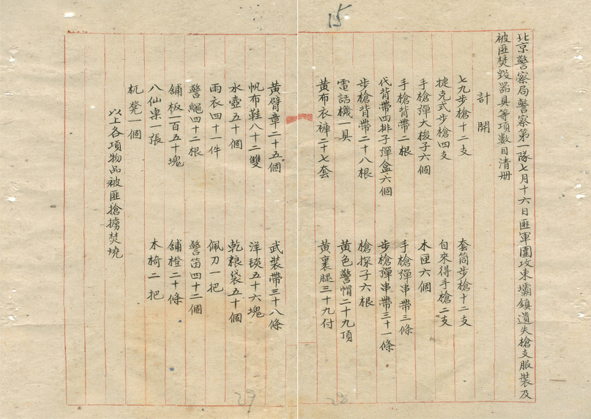 15
北京警察局警察第一隊七月十六日匪軍圍攻東壩鎮遺失槍支服裝及
被匪焚毀器具等項数目清册
計開
七九步槍十二支 套筒步槍十二支
捷克式步槍四支 自來得手槍二支
手槍彈大梭子六個 木匣六個
手槍背帶二根 手槍彈串帶三條
代背帶四排子彈盒六個 步槍彈串帶三十一條
步槍背帶二十八根 槍探子六根
電話機一具 黄色警帽二十九頂
黄布衣褲二十七套 黄裹腿三十九付
黄臂章二十五個 武装帶三十八條
帆布鞋八十二雙 洋毯五十六塊
水壺五十個 乾粮袋五十個
雨衣四十一件 佩刀一把
警繩四十二根 警笛四十二個
鋪板一百五十塊 鋪櫈二十條
八仙桌一張 木椅二把
机凳一個
以上各項物品被匪搶擄焚燒